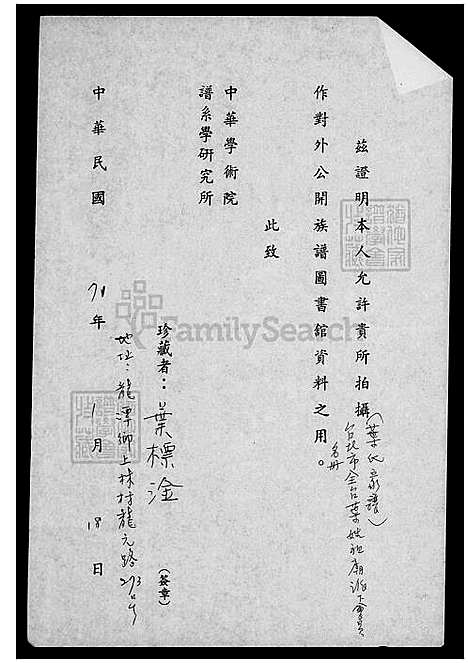 茲證明本人允許貴所拍攝(葉氏家譜)
台北市全台葉姓祖廟派下會員
名冊
作對外公開族譜圖書館資料之用。
此致
中華學術院
譜系學研究所
珍藏者：葉標淦(簽章)
地址：龍潭鄉上林村龍元路293号
中華民國71年1月18日
FamilySearch